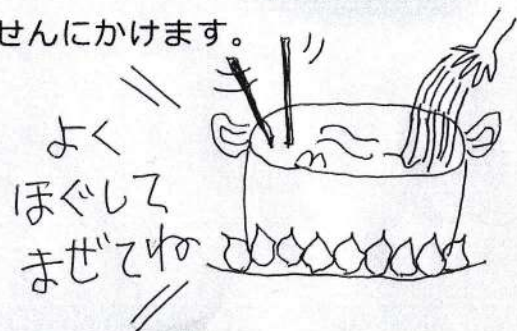 せんにかけます。
よく
ほぐして
まぜてね